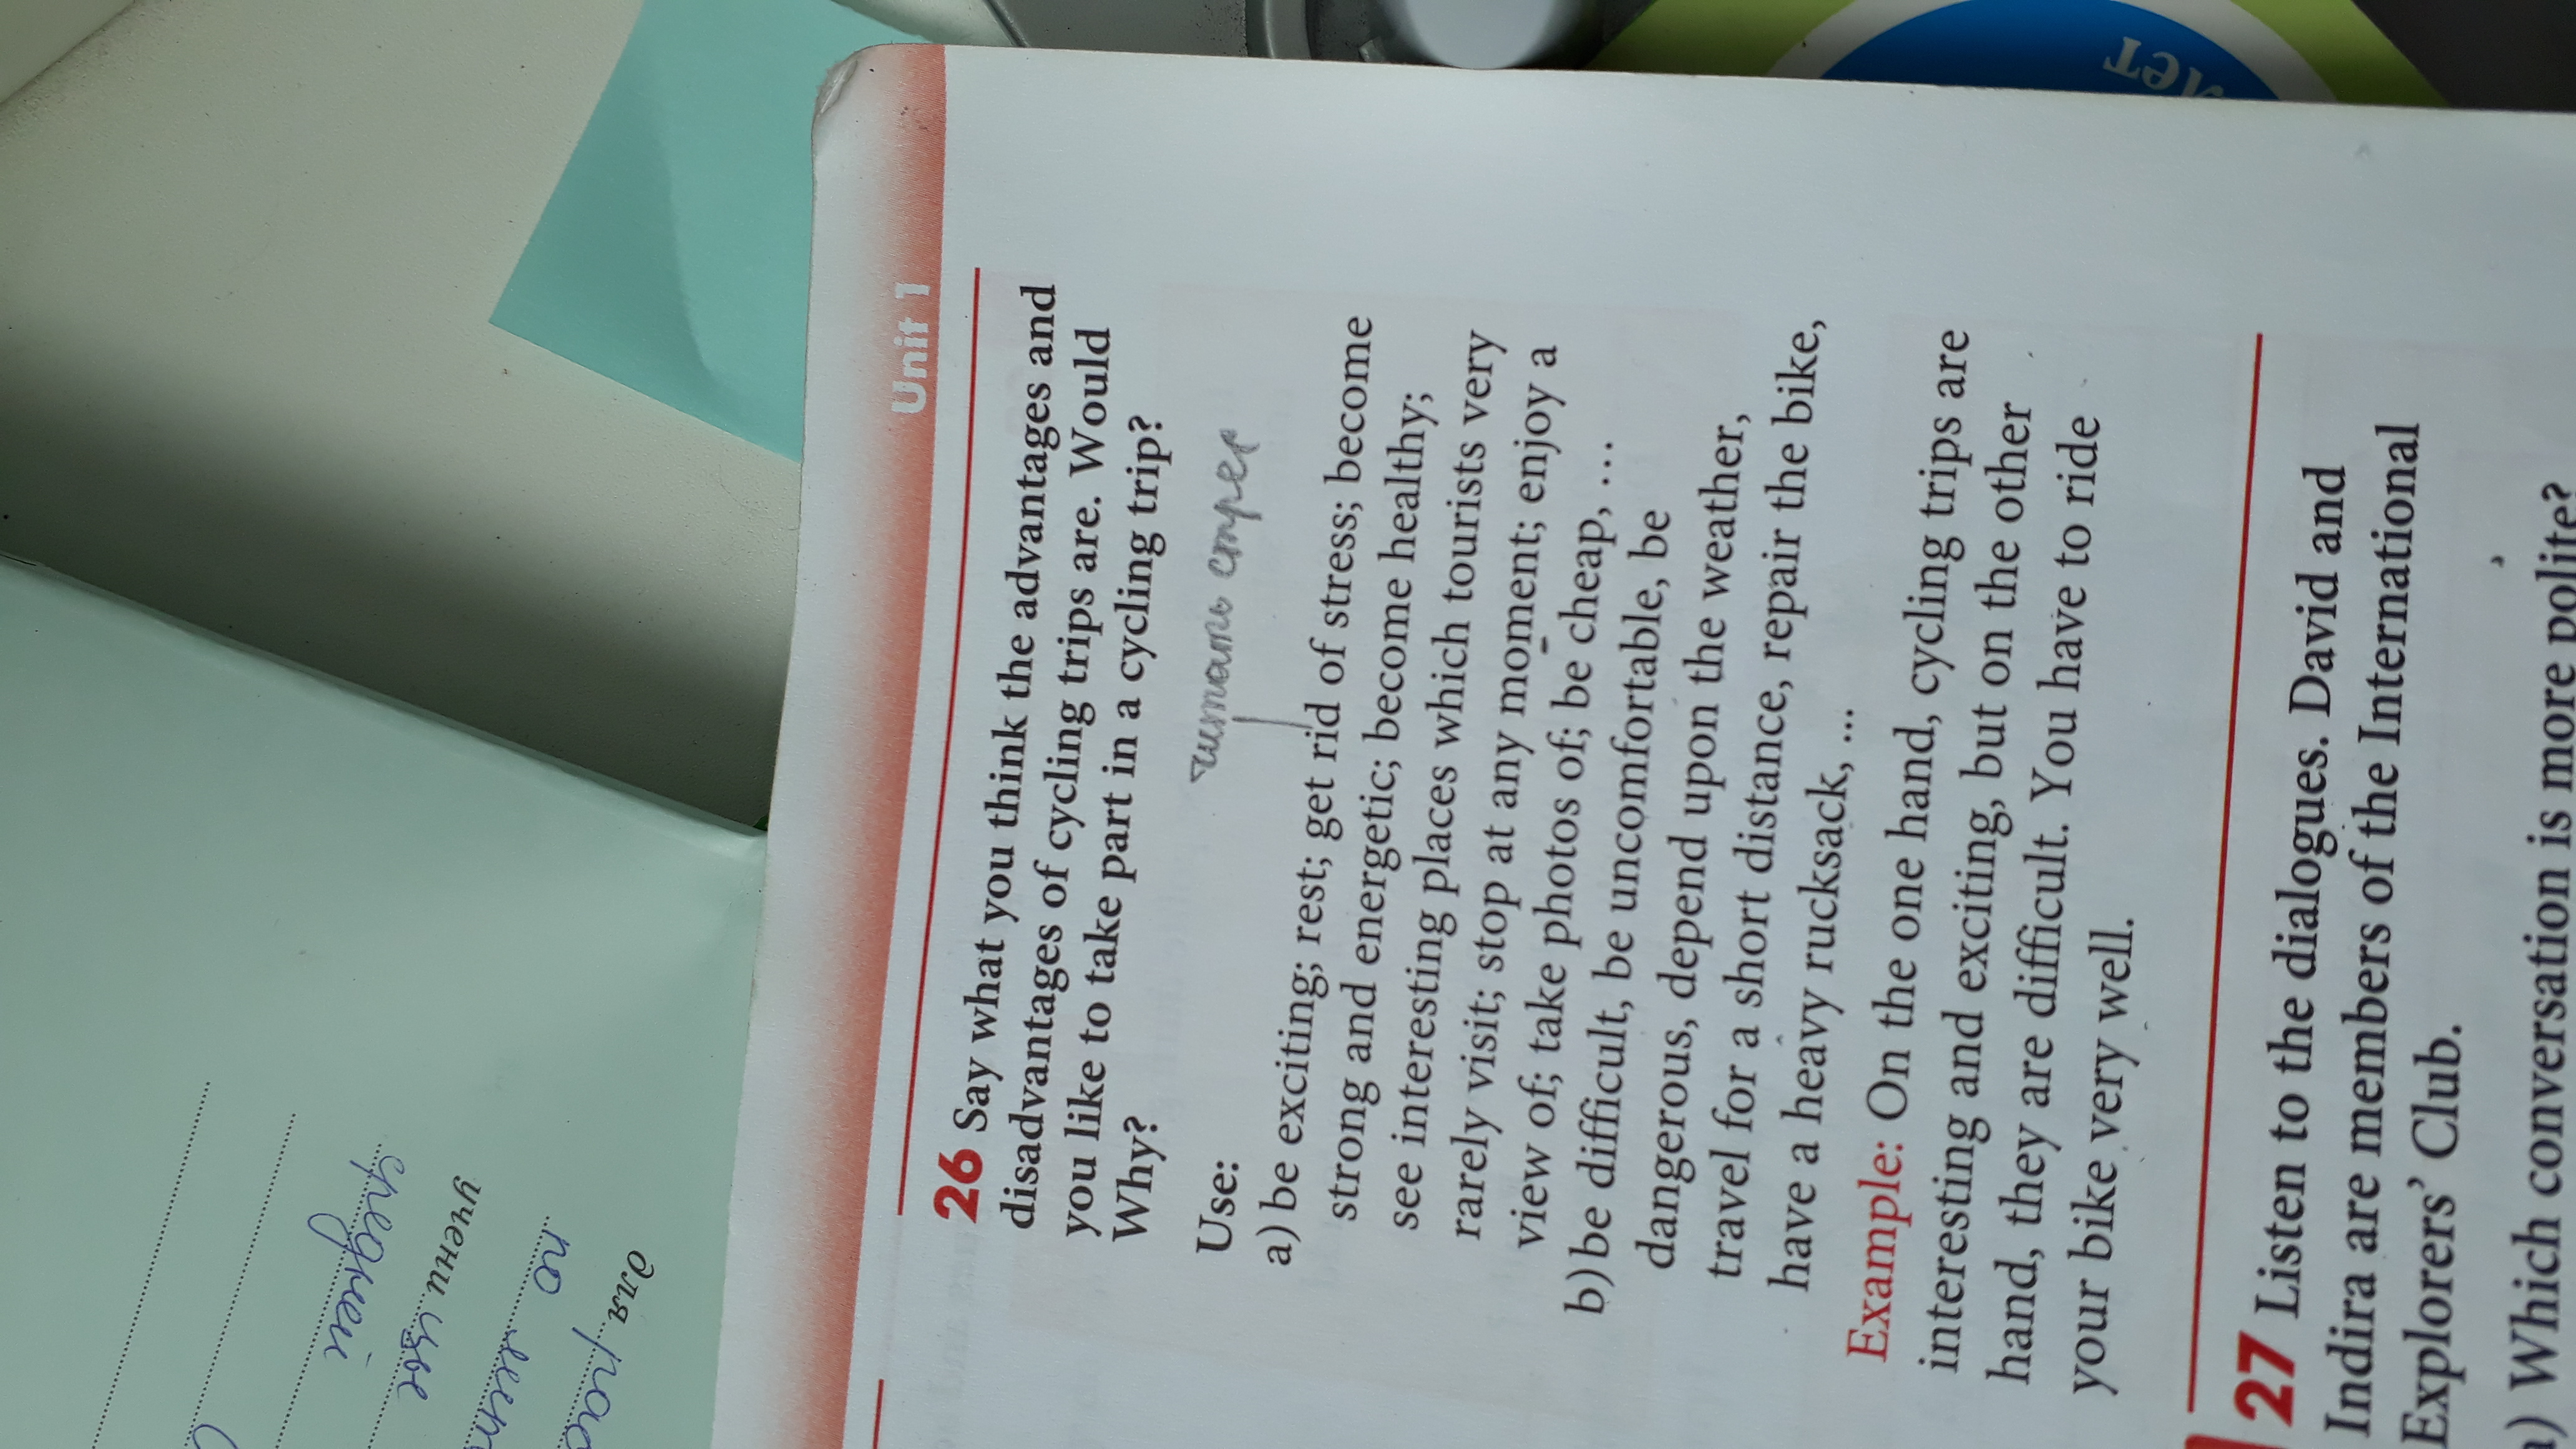 Unit 1
26 Say what you think the advantages and
disadvantages of cycling trips are. Would
you like to take part in a cycling trip?
Why?
Use:
a) be exciting; rest; get rid of stress; become
strong and energetic; become healthy;
see interesting places which tourists very
rarely visit; stop at any moment; enjoy a
view of; take photos of; be cheap, ...
b) be difficult, be uncomfortable, be
dangerous, depend upon the weather,
travel for a short distance, repair the bike,
have a heavy rucksack, ...
Example: On the one hand, cycling trips are
interesting and exciting, but on the other
hand, they are difficult. You have to ride
your bike very well.
27 Listen to the dialogues. David and
Indira are members of the International
Explorers' Club.
) Which conversation is more polite?
для
по
учени
средней